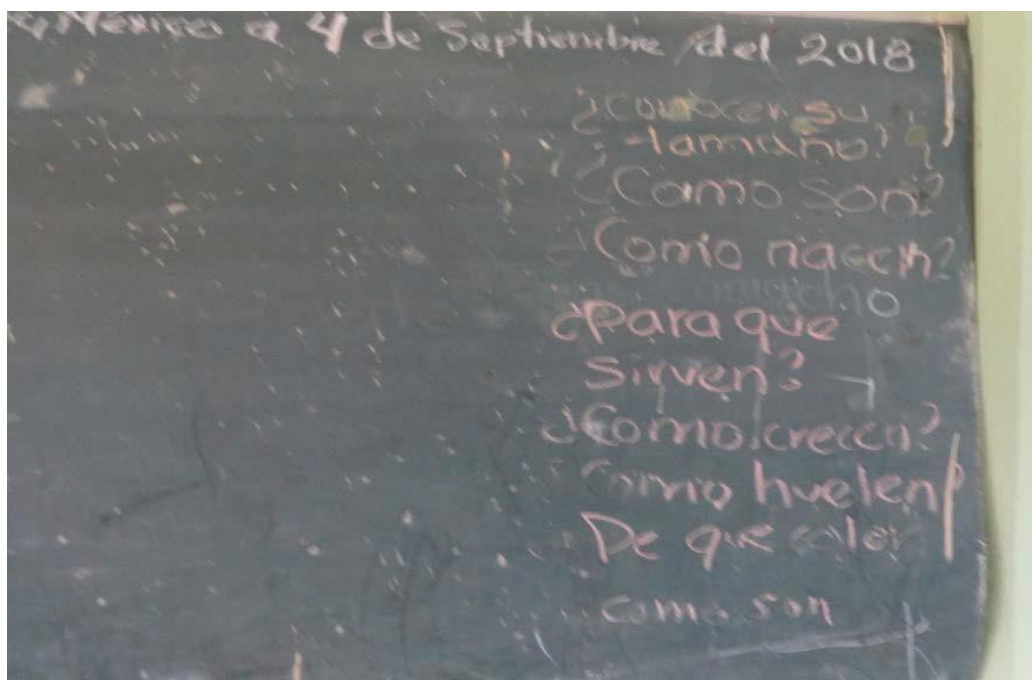 México a 4 de Septiembre del 2018
¿Conocer su
tamaño?
¿Como son?
Como nacen?
¿Para que
sirven?
¿Como crecen?
Como huelen
De que color
como son